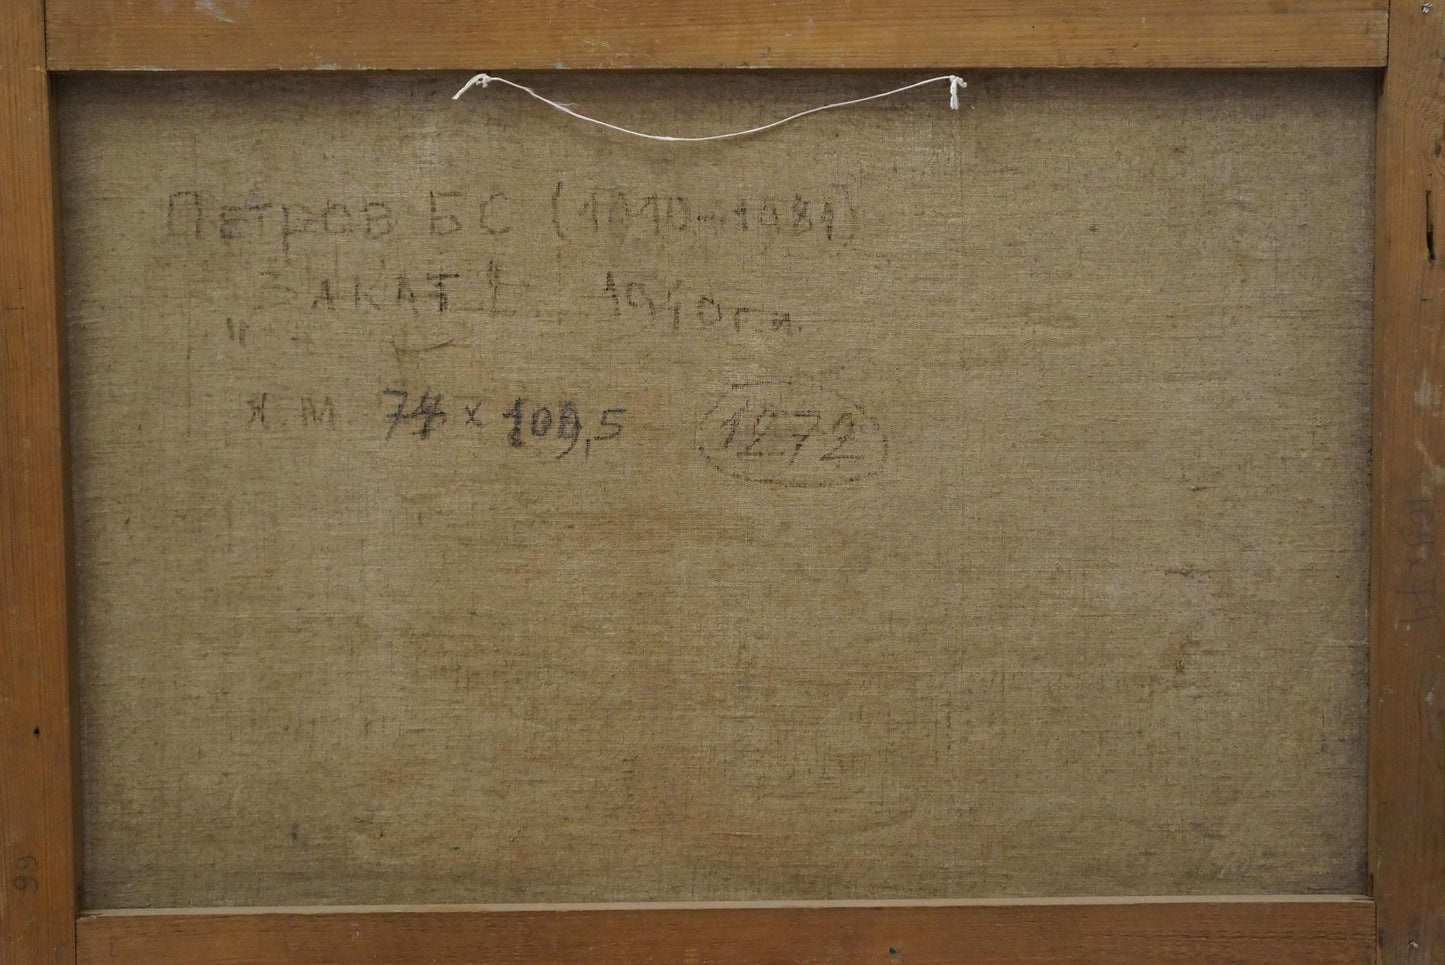 Петров БС (1910-1981)
ЗАКАТ 1940
х. м. 74 х 109,5
1272
99